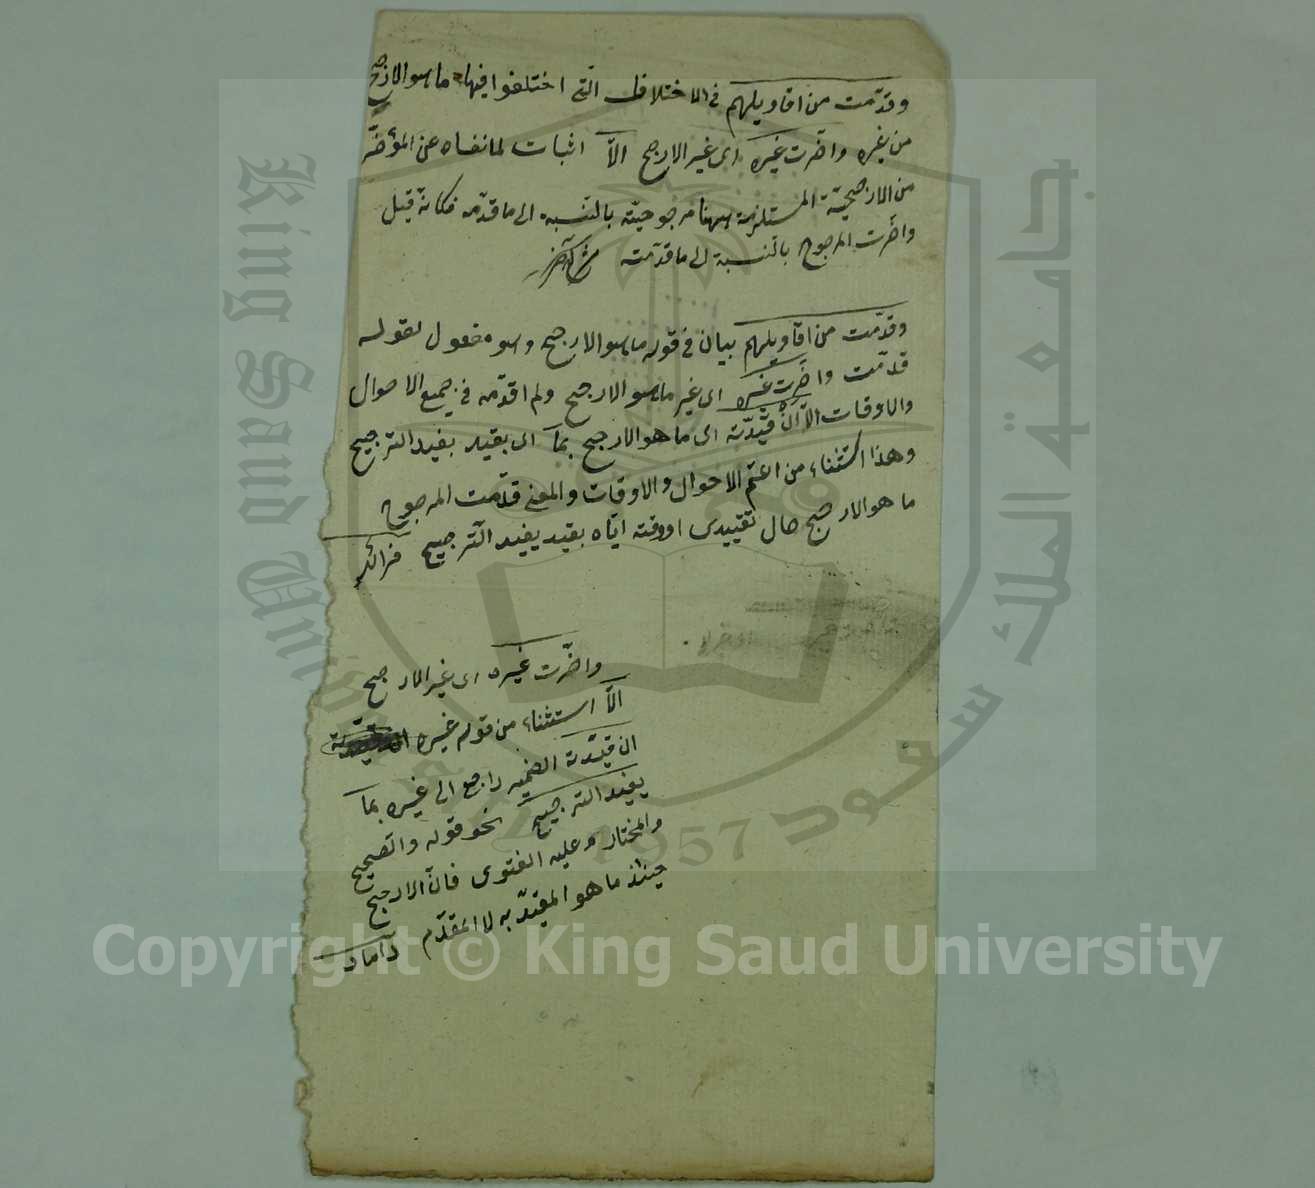 وقدّمت من اقاويلهم في الاختلاف التي اختلفوا فيها ما هو الارجح
من غيره واخّرت غيره اى غير الارجح الاّ اثبات لما نفاه عن المؤخّر
من الارجحيّة المستلزمة مرجوحيّته بالنّسبة الى ما قدّمه فكانه قيل
واخّرت المرجوح بالنّسبة الى ما قدّمته
وقدّمت من اقاويلهم بيان في قوله ما هو الارجح وهو مفعول لقوله
قدّمت واخّرت غيره اى غير ما هو الارجح ولم اقدّمه في جميع الاحوال
والاوقات الاّ ان قيّدته اى ما هو الارجح بما اى بقيد يفيد الترجيح
وهذا استثناء من اعمّ الاحوال والاوقات والمعنى قدّمت المرجوح
ما هو الارجح حال تقييدى او وقته ايّاه بقيد يفيد الترجيح فرائد
واخّرت غيره اى غير الارجح
الاّ استثناء من قوله غيره
ان قيّدته الضمير راجع الى غيره بما
يفيد الترجيح نحو قوله والصحيح
والمختار وعليه الفتوى فانّ الارجح
حينئذ ما هو المقيّد به لا المقدّم داماد
King Saud University
جامعة الملك سعود
1957
Copyright © King Saud University